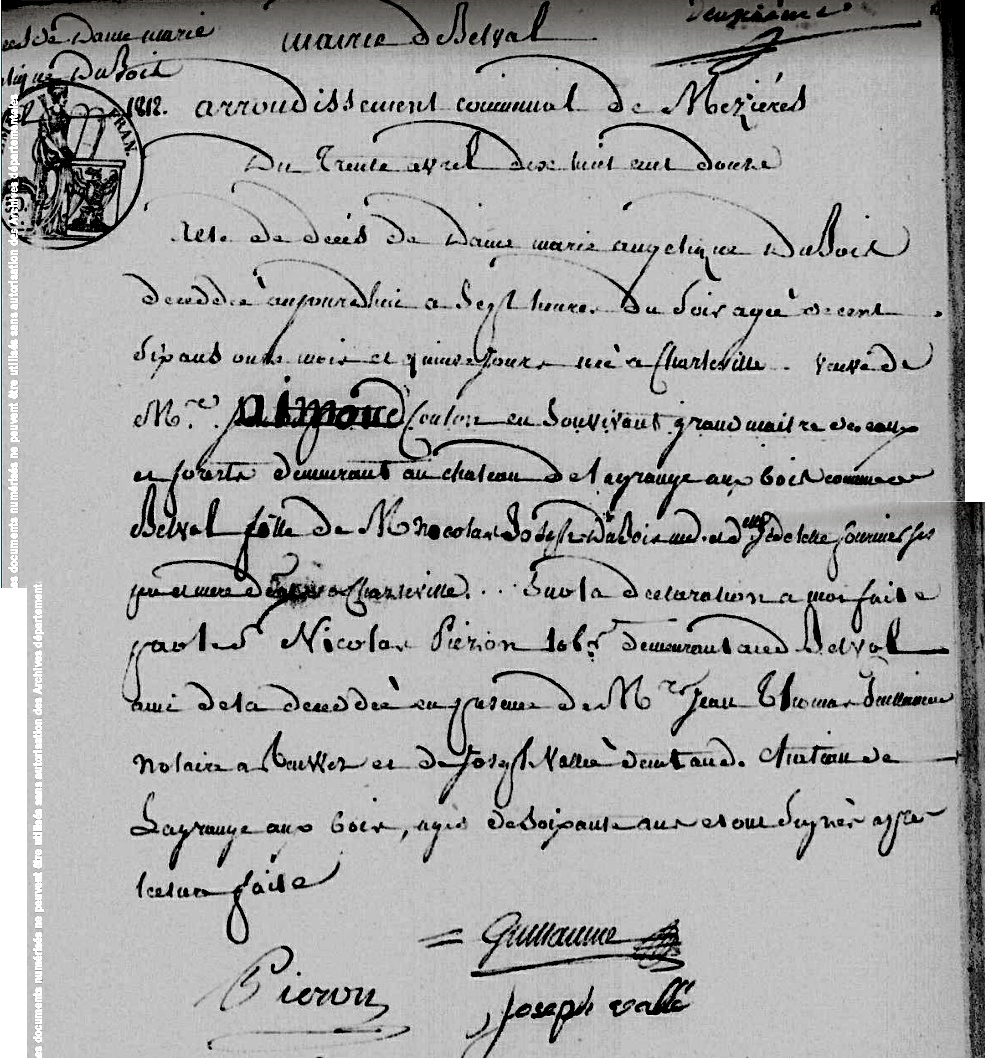 décès de Dame marie
angelique DuBois
mairie de Belval
Deuxième
1812. arrondissement communal de Mezières
FRAN.
Du Trente avril dix huit cent douze
Acte de décés de Dame marie angelique DuBois
decedée aujourdhui a Sept heures du Soir ageé de cent
Six ans onze mois et quinze jours née a Charleville. veuve de
M.re Coulon en Souvivant grand maitre des eaux
et forets demeurant au chateau de Lagrange aux bois commune
Belval fille de M Nicolas Joseph DuBois et de fournier ses
pere et mere Charleville. .. Surla declaration a moi faite
par le S Nicolas Piéron demeurant audt Belval
ami dela decedeè en presence de M.re Jean Thomas Guillaume
notaire a et de Joseph Vallée demt aud. Chateau de
Lagrange aux bois, agés de Soixante ans etont Signés apres
lecture faite
= Guillaume
Pieron
Joseph vallé
es documents numérisés ne peuvent être utilisés sans autorisation des Archives départementales
es documents numérisés ne peuvent être utilisés sans autorisation des Archives département